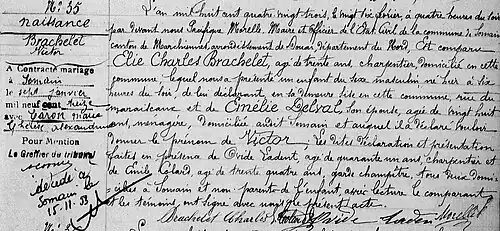 N° 35
naissance
Brachelet
Victor
A Contracté mariage
à Somain
le sept janvier
mil neuf cent treize
avec Caron Marie
Ghislise Alexandrine
Pour Mention
Le Greffier du tribunal
décédé à
Somain le
15-11-53
L'an mil huit cent quatre vingt trois, le vingt six février, à quatre heures du soir
par devant nous Pacifique Morelle, Maire et Officier de l'Etat Civil de la commune de Somain
canton de Marchiennes, arrondissement de Douai, département du Nord, Est comparu
Elie Charles Brachelet, âgé de trente ans, charpentier, domicilié en cette
commune, lequel nous a présenté un enfant du sexe masculin né hier à six
heures du soir, de lui déclarant, en sa demeure sise en cette commune, rue du
et de Emélie Delval, son épouse, âgée de vingt huit
ans, ménagère, domiciliée audit Somain et auquel il a déclaré vouloir
donner le prénom de Victor; les dites déclaration et présentation
faites en présence de Ovide Ladent, âgé de quarante un ans, charpentier et
de Emile Colard, âgé de trente quatre ans, garde champêtre, tous deux domi-
-ciliés à Somain et non parents de l'enfant, après lecture le comparant
et les témoins, ont signé avec nous le présent acte.
Brachelet Charles Ovide Ladent Morelle